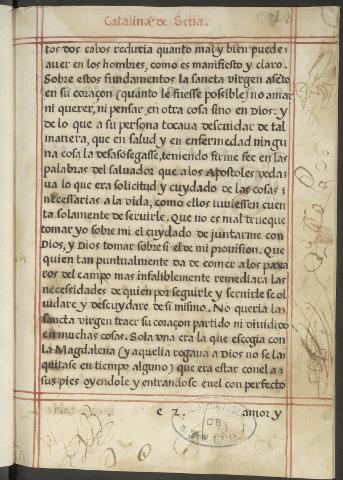 Catalina de Sena.
tos dos cabos reduzia quanto mal y bien puede
auer en los hombres, como es manifiesto y claro.
Sobre estos fundamentos la sancta virgen aseto
en su coraçon (quanto le fuesse possible) no amar
ni querer, ni pensar en otra cosa sino en Dios: y
de lo que a su persona tocaua descuidar de tal
manera, que en salud y en enfermedad ningu
na cosa la desasosegasse, teniendo firme fee en las
palabras del saluador que a los Apostoles veda
ua lo que era solicitud y cuydado de las cosas
necessarias a la vida, como ellos tuuiessen cuen
ta solamente de seruirle. Que no es mal trueque
tomar yo sobre mi el cuydado de juntarme con
Dios, y Dios tomar sobre si el de mi prouision. Que
quien tan puntualmente da de comer a los paxa
ros del campo mas infaliblemente remediara las
necessidades de quien por seguirle y seruirle se ol
uidare y descuydare de si mismo. No queria la
sancta virgen traer su coraçon partido ni diuidido
en muchas cosas. Sola vna era la que escogia con
la Magdalena (y aquella rogaua a Dios no se la
quitase en tiempo alguno) que era estar conel a
sus pies oyendole y entrandose enel con perfecto
e 2.
amor y